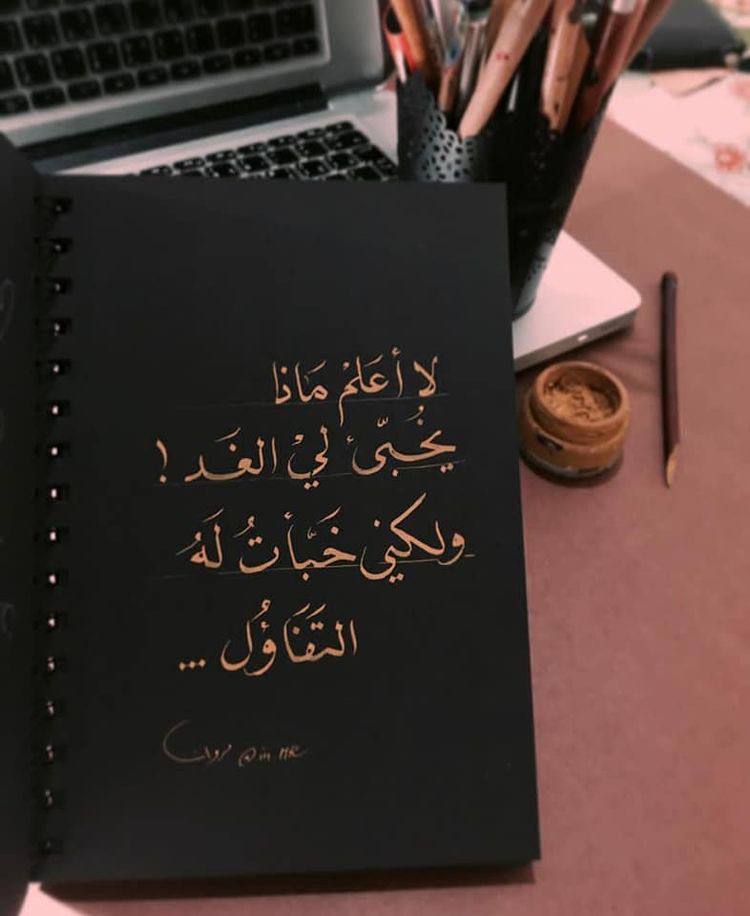 لا أعَلمْ مَاذا
يُخُبّىء ليْ الغَد !
ولكني خَبَّأتُ لَهُ
التَفَاؤُل ...
@in MR